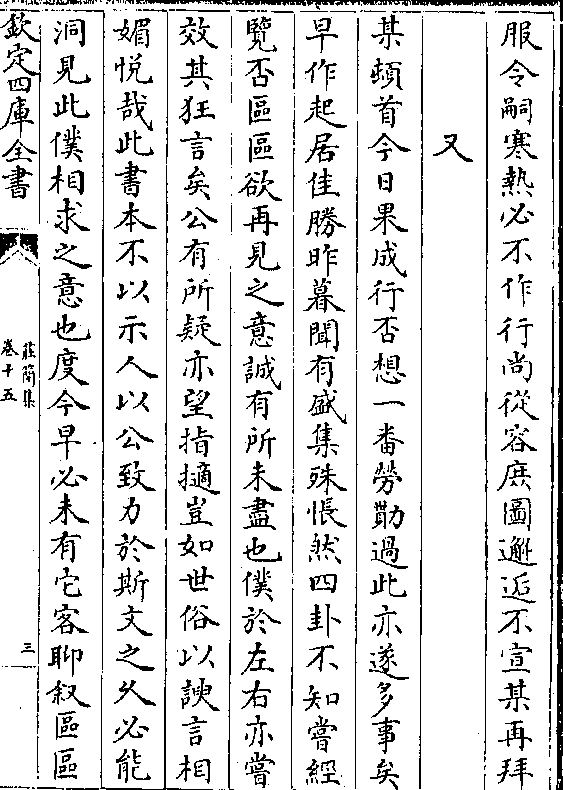 服令嗣寒熱必不作行尚從容庶圖邂逅不宣某再拜
又
某頓首今日果成行否想一番勞勩過此亦遂多事矣
早作起居佳勝昨暮聞有盛集殊悵然四卦不知嘗經
覽否區區欲再見之意誠有所未盡也僕於左右亦嘗
效其狂言矣公有所疑亦望指擿豈如世俗以諛言相
媚悦哉此書本不以示人以公致力於斯文之乆必能
洞見此僕相求之意也度今早必未有它客聊叙區區
欽定四庫全書
莊簡集
卷十五
三